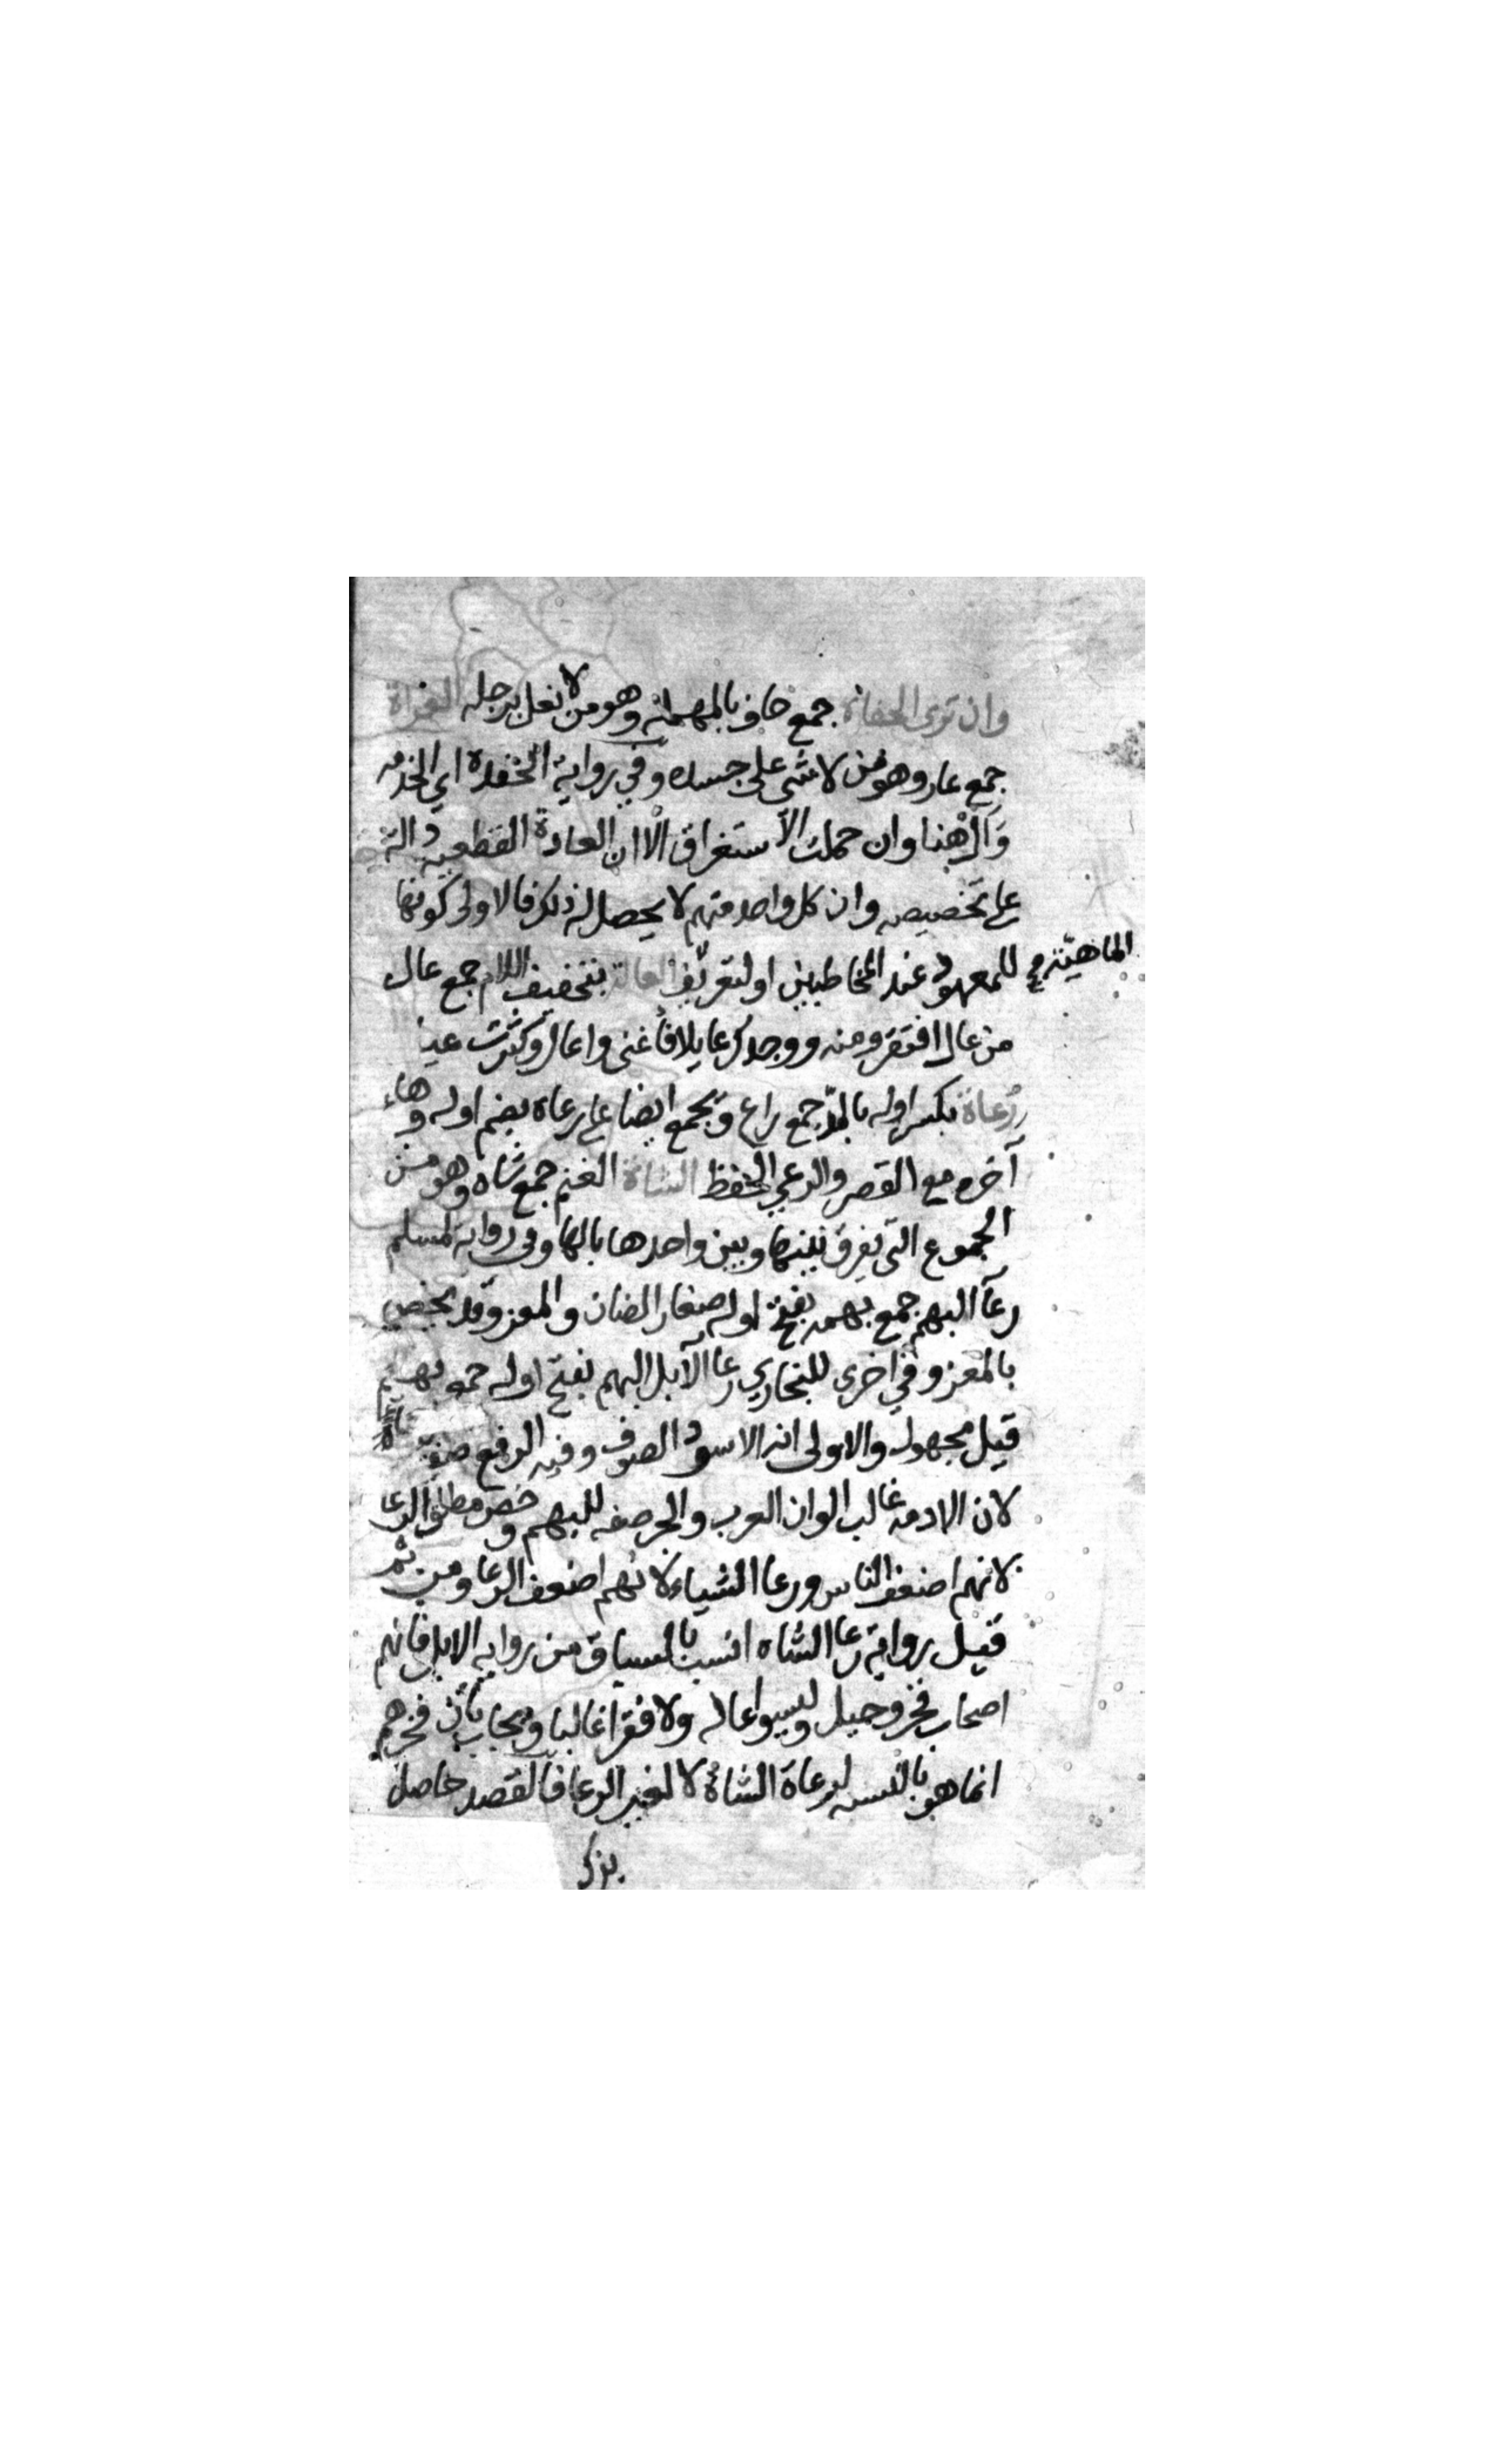 وان ترى الحفاة جمع حاف بالمهملة وهو من لا نعل برجله العراة
جمع عار وهو من لا شي على جسده وفي رواية الحفدة اي الخدمه
وَالْ هنا وان حملت الاستغراق الا ان العادة القطعيه دالة
على تخصيصه وان كل واحد منهم لا يحصل له ذلك فالاولى كونها
للمعهود عند المخاطبين او لتعريف العالة بتخفيف اللام جمع عال
الماهيّة صح
من عال افتقر ومنه ووجدك عايلا فأغنى واعال وكثرت
رُعاة بكسر اوله بالمدّ جمع راع ويجمع ايضا على رعاة بضم اوله وهاء
آخره مع القصر والرعي الحفظ الشاة الغنم جمع شاه وهو من
الجموع التي يفرق بينها وبين واحدها بالها وفي رواية لمسلم
رعآ البهم جمع بهمه بفتح اوله صغار الضان والمعز وقد يختص
بالمعز وفي اخرى للبخاري رعا الآبل البهم بفتح اوله جمع بهيم
قيل مجهول والاولى انه الاسود الصرف وفيه الرفع صفة
لان الادمه غالب الوان العرب والجر صفه للبهم وخص مطلق الرعا
لانهم اضعف الناس ورعا الشياه لانهم اضعف الرعا ومن ثم
قيل رواية رعا الشاه انسب بالسياق من رواية الابل فانهم
اصحاب فخر وخيل وليسوا عاله ولا فقرا غالبا ويجاب بأن فخرهم
انما هو بالنسبه لرعاة الشاة لا لغير الرعا فالقصد حاصل
بذكر